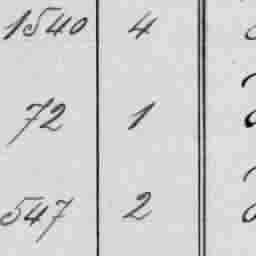 1540 4
72 1
547 2